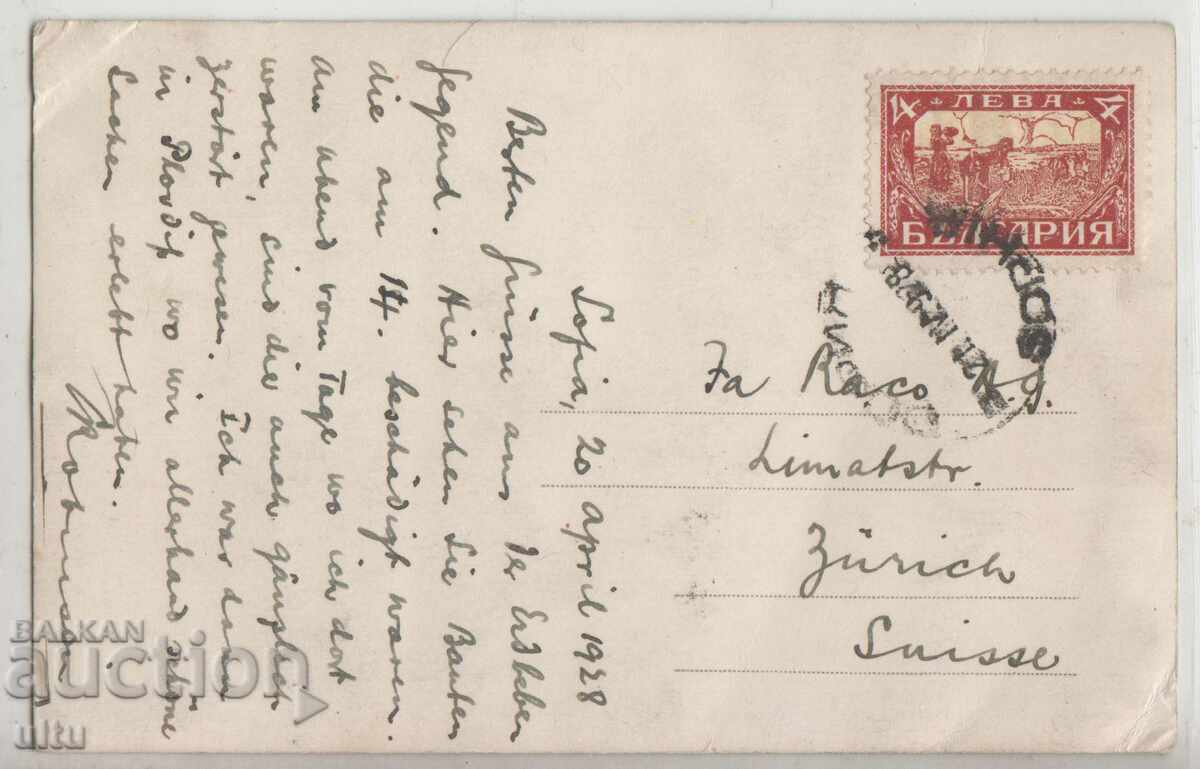 Sofia, 20 april 1928
Besten Grüsse aus der Erdbeben
Gegend. Hier sehen Sie Bauten
die am 14. beschädigt waren.
am abend vom Tage wo ich dort
waren, sind die auch gänzlich
zerstört gewesen. Ich war dann
in Plovdif wo wir allerhand schöne
Sachen erlebt haben.
4 ЛЕВА 4
БЪЛГАРИЯ
SOPHIA
Fa Raco A.g.
Limatstr.
Zürich
Suisse
BALKAN
auction
ultu